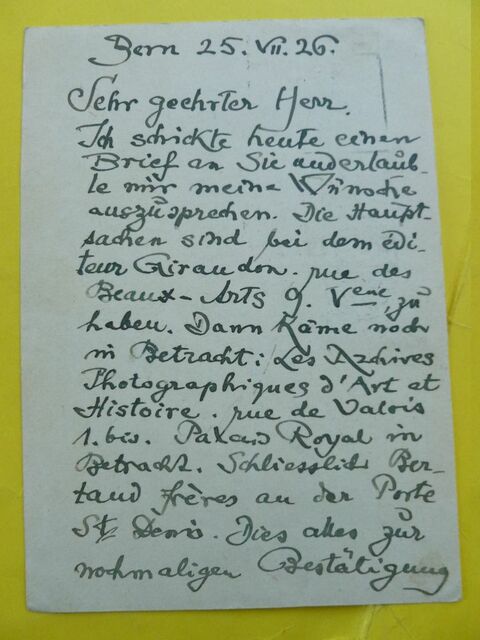 Bern 25. VII. 26.
Sehr geehrter Herr.
Ich schickte heute einen
Brief an Sie und erlaub-
te mir meine Wünsche
auszusprechen. Die Haupt-
sachen sind bei dem édi-
teur Giraudon. rue des
Beaux-Arts 9. Veme, zu
haben. Dann käme noch
in Betracht: Les Archives
Photographiques d'Art et
Histoire. rue de Valois
1. bis. Palais Royal in
Betracht. Schliesslich Ber-
taud frères an der Porte
St. Dénis. Dies alles zur
nochmaligen Bestätigung